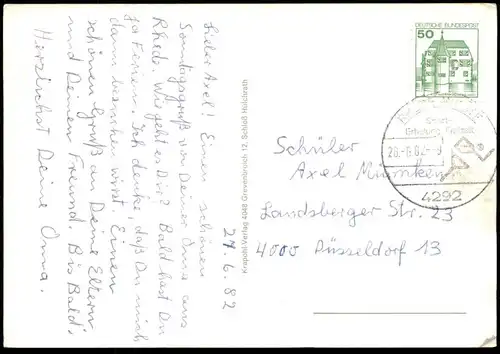 27.6.82
Lieber Axel! Einen schönen
Sonntagsgruß von Deiner Oma aus
Rhede. Wie geht es Dir? Bald hast Du
ja Ferien. Ich denke, daß Du mich
dann besuchen wirst. Einen
schönen Gruß an Deine Eltern
und Deinen Freund. Bis Bald!
Herzlichst Deine Oma.
Krapohl-Verlag 4048 Grevenbroich 12, Schloß Hülchrath
50
DEUTSCHE BUNDESPOST
Sport
Erholung Freizeit
28.-6.82
4292
Schüler
Axel
Landsberger Str. 23
4000 Düsseldorf 13